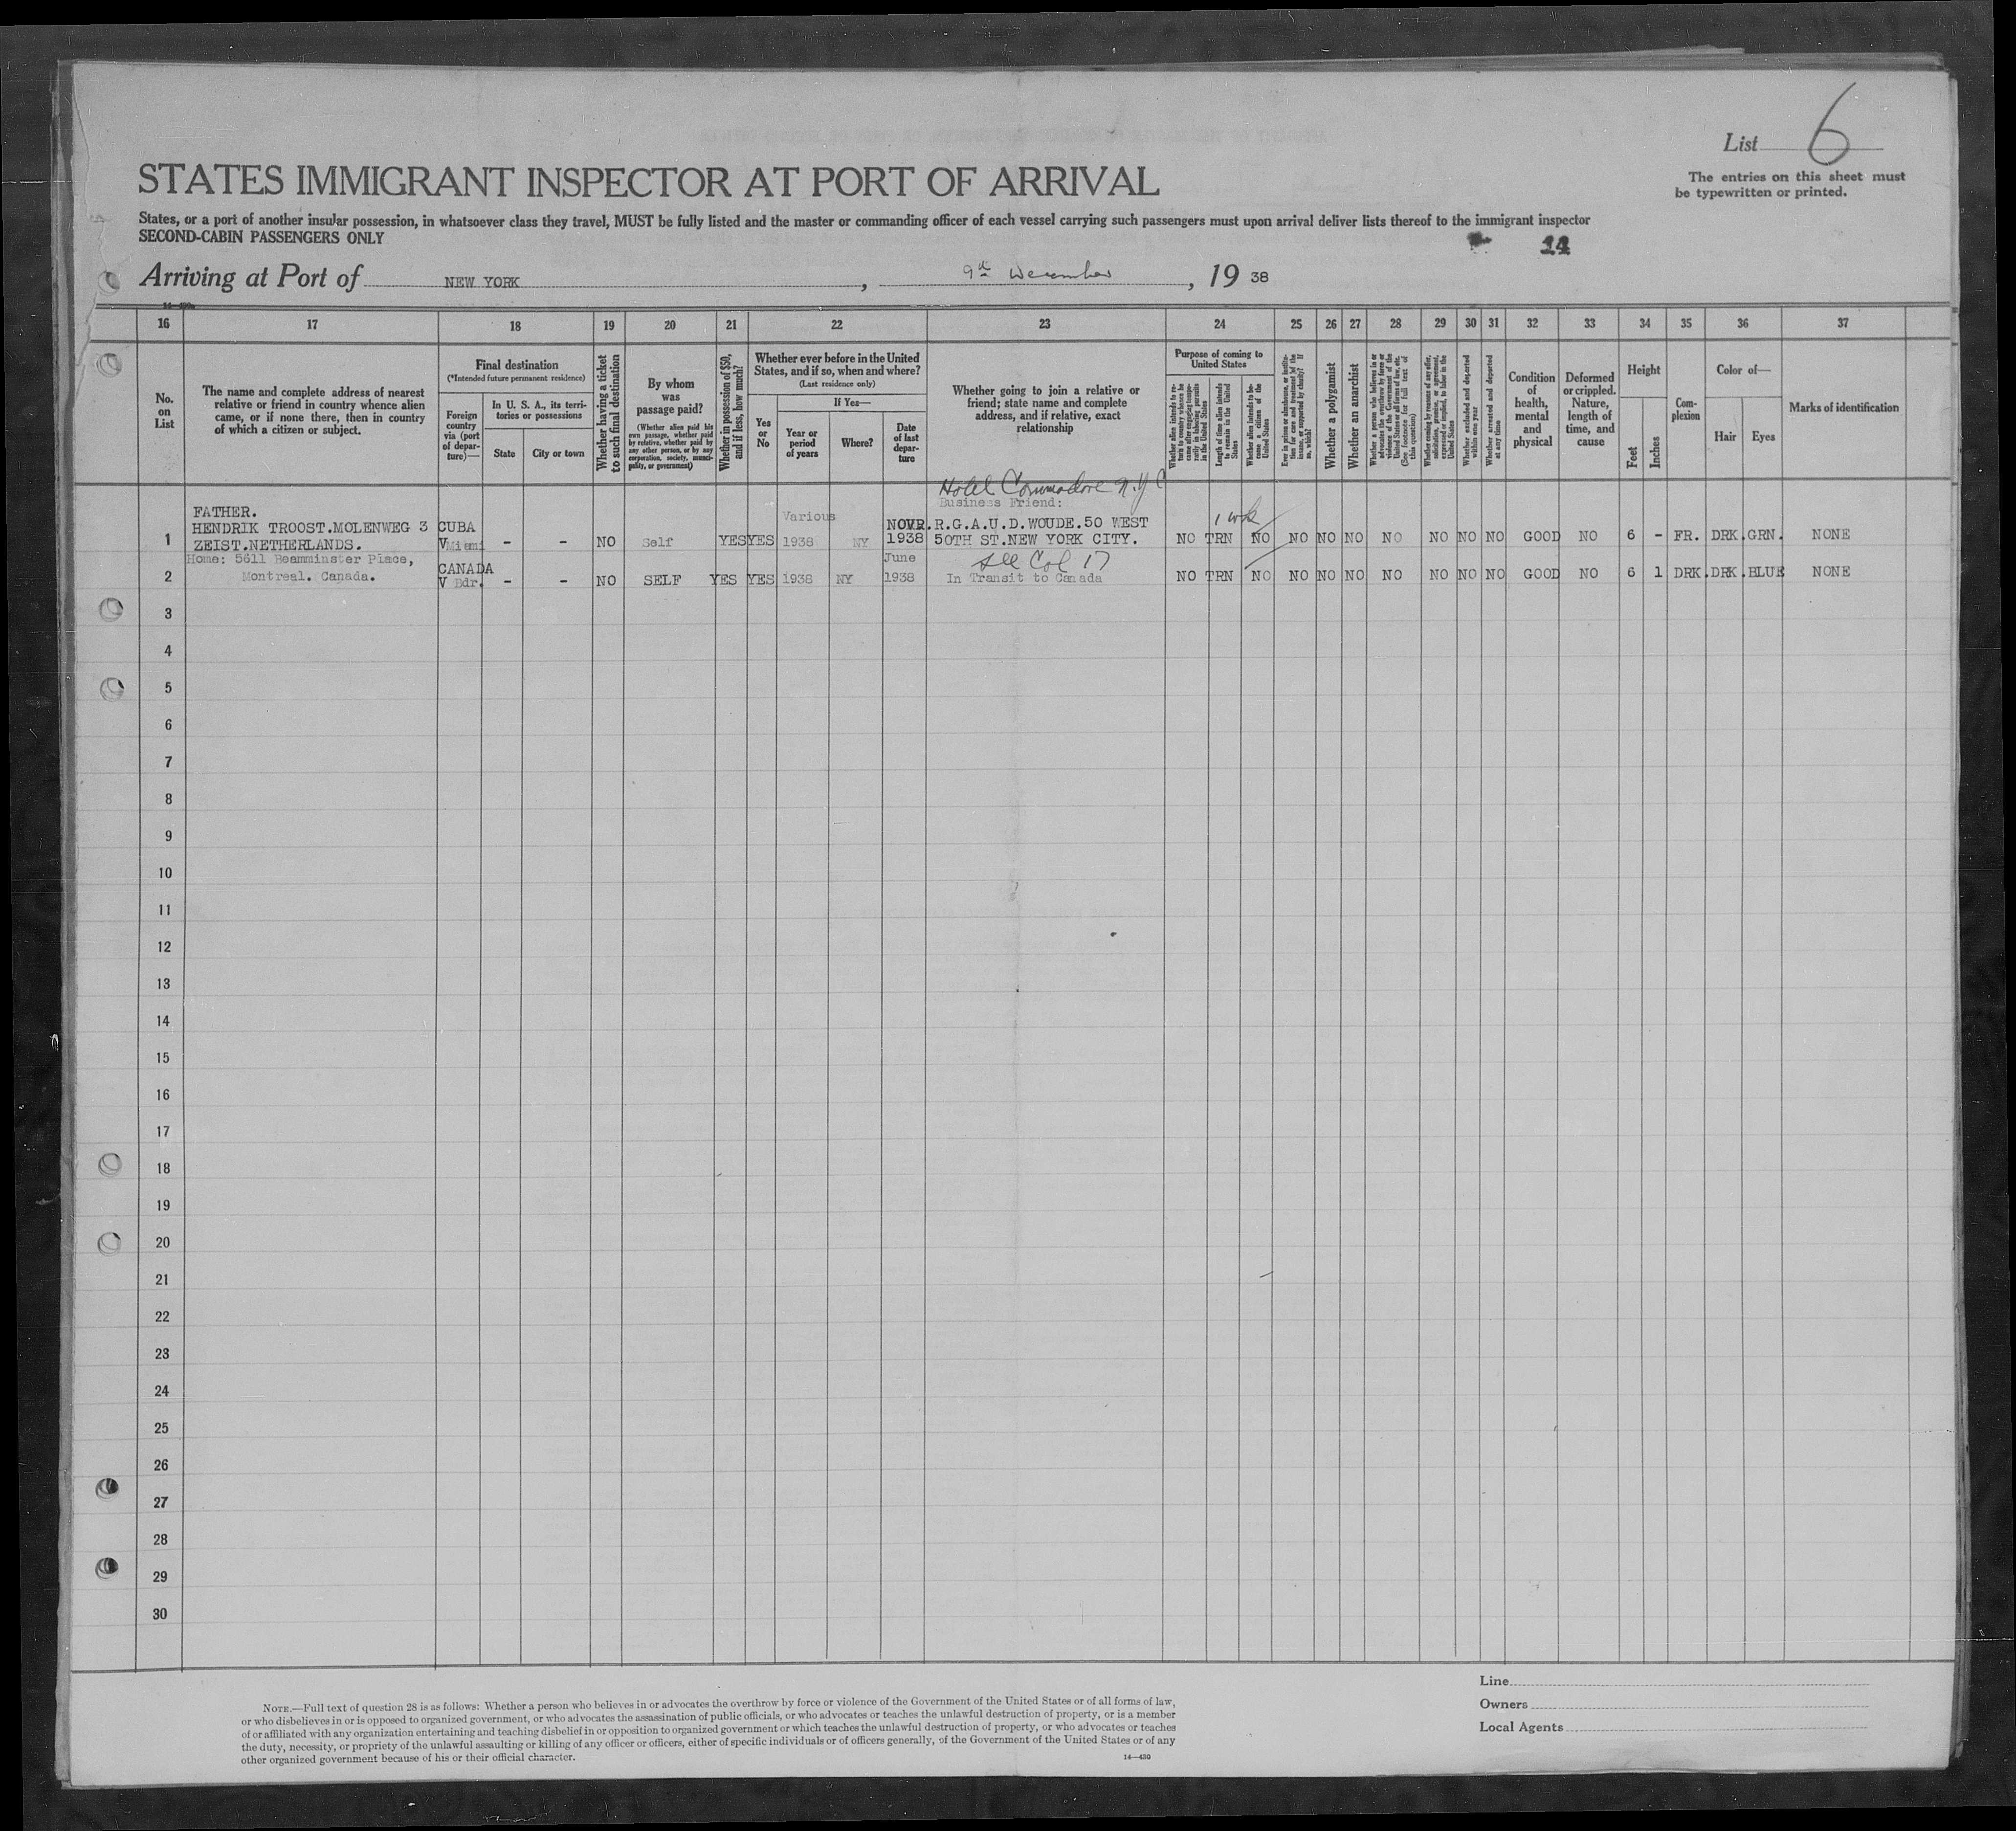 List 6
The entries on this sheet must
be typewritten or printed.
STATES IMMIGRANT INSPECTOR AT PORT OF ARRIVAL
States, or a port of another insular possession, in whatsoever class they travel, MUST be fully listed and the master or commanding officer of each vessel carrying such passengers must upon arrival deliver lists thereof to the immigrant inspector
SECOND-CABIN PASSENGERS ONLY
14
Arriving at Port of NEW YORK, 9th December, 1938
16 17 18 19 20 21 22 23 24 25 26 27 28 29 30 31 32 33 34 35 36 37
No.
on
List
The name and complete address of nearest
relative or friend in country whence alien
came, or if none there, then in country
of which a citizen or subject.
Final destination
(*Intended future permanent residence)
Foreign
country
via (port
of depar-
ture)—
In U. S. A., its terri-
tories or possessions
State
City or town
Whether having a ticket
to such final destination
By whom
was
passage paid?
(Whether alien paid his
own passage, whether paid
by relative, whether paid by
any other person, or by any
corporation, society, munici-
pality, or government)
Whether in possession of $50,
and if less, how much?
Whether ever before in the United
States, and if so, when and where?
(Last residence only)
Yes
or
No
If Yes—
Year or
period
of years
Where?
Date
of last
depar-
ture
Whether going to join a relative or
friend; state name and complete
address, and if relative, exact
relationship
Purpose of coming to
United States
Length of time alien intends
to remain in the United
States
Whether alien intends to be-
come a citizen of the
United States
Whether a polygamist
Whether an anarchist
Whether excluded and deported
within one year
Whether arrested and deported
at any time
Condition
of
health,
mental
and
physical
Deformed
or crippled.
Nature,
length of
time, and
cause
Height
Feet
Inches
Com-
plexion
Color of—
Hair
Eyes
Marks of identification
Hotel Commodore N.Y.C
FATHER. Business Friend:
HENDRIK TROOST.MOLENWEG 3 CUBA Various NOVR. R.G.A.U.D.WOUDE.50 WEST 1 wk
1 ZEIST.NETHERLANDS. V Miami - - NO Self YES YES 1938 NY 1938 50TH ST.NEW YORK CITY. NO TRN NO NO NO NO NO NO NO NO GOOD NO 6 - FR. DRK. GRN. NONE
Home: 5611 Beamminster Place, CANADA June See Col 17
2 Montreal. Canada. V Bdr. - - NO SELF YES YES 1938 NY 1938 In Transit to Canada NO TRN NO NO NO NO NO NO NO NO GOOD NO 6 1 DRK. DRK. BLUE NONE
3
4
5
6
7
8
9
10
11
12
13
14
15
16
17
18
19
20
21
22
23
24
25
26
27
28
29
30
NOTE.—Full text of question 28 is as follows: Whether a person who believes in or advocates the overthrow by force or violence of the Government of the United States or of all forms of law,
or who disbelieves in or is opposed to organized government, or who advocates the assassination of public officials, or who advocates or teaches the unlawful destruction of property, or is a member
of or affiliated with any organization entertaining and teaching disbelief in or opposition to organized government or which teaches the unlawful destruction of property, or who advocates or teaches
the duty, necessity, or propriety of the unlawful assaulting or killing of any officer or officers, either of specific individuals or of officers generally, of the Government of the United States or of any
other organized government because of his or their official character.
14—430
Line
Owners
Local Agents